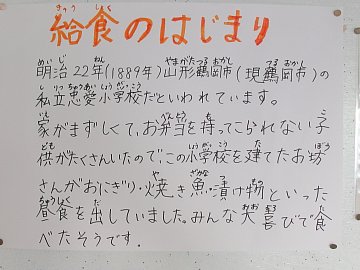 給食のはじまり
明治22年(1889年)山形鶴岡市(現鶴岡市)の
私立忠愛小学校だといわれています。
家がまずしくて、お弁当を持ってこられない子
供がたくさんいたので、この小学校を建てたお坊
さんがおにぎり・焼き魚・漬け物といった
昼食を出していました。みんな大喜びで食
べたそうです.